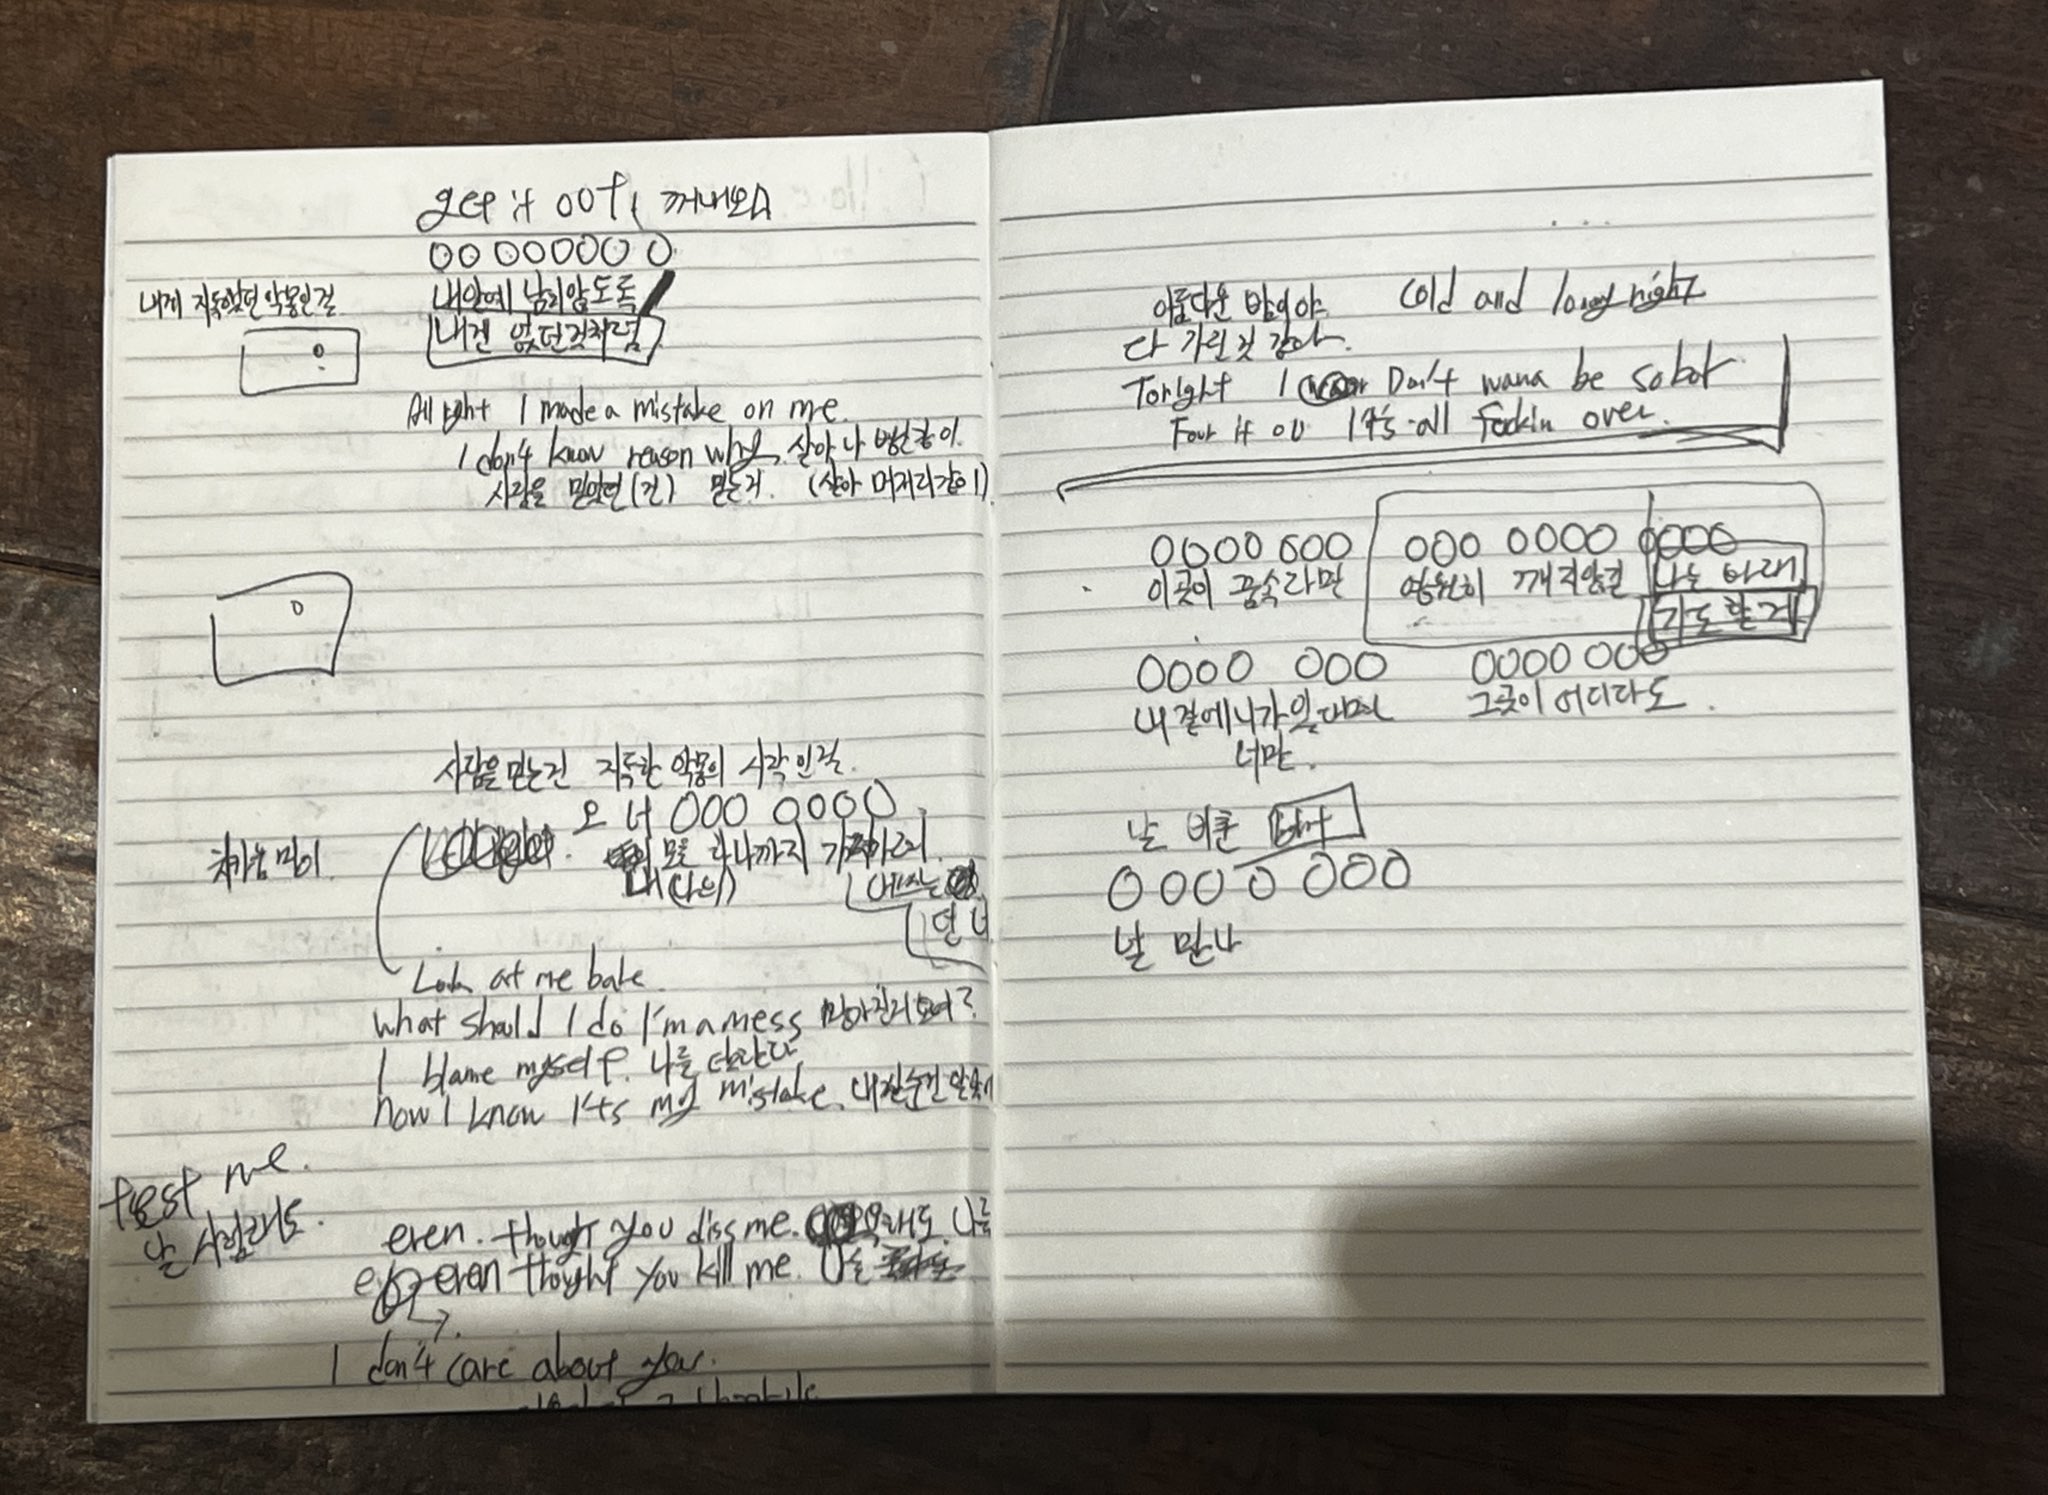 get it out, 꺼내오고
OO OOOOO O
내게 지독했던 악몽인걸
내안에 남지않도록
내겐 없던것처럼
All right I made a mistake on me.
I don't know reason why, 살아 나 병신같이
사람을 믿었던(건) 믿는거. (살아 머저리같이)
사람을 믿는건 지독한 악몽의 시작인걸.
오 너 OOO OOOO
모두 하나까지
내(나의)
던 너
Look at me babe.
what should I do I'm a mess 망가진게 보여?
I blame myself. 나를 탓한다
now I know it's my mistake. 내 실수인
test me.
날 시험해도.
even. though you diss me. 욕해도 나를
even thought you kill me.
I don't care about you.
아름다운 밤이야 Cold and long night
다 가린것 같아.
Tonight I Don't wana be sobor
Four it ou It's all fuckin over.
OOOO OOO OOO OOOO OOOO
이곳이 꿈속라면 영원히 깨지않길 나는 바래
기도할게
OOOO OOO OOOO OOO
내 곁에 니가 있다면 그곳이 어디라도.
너만.
날 바꾼
O OO O OOO
날 만나